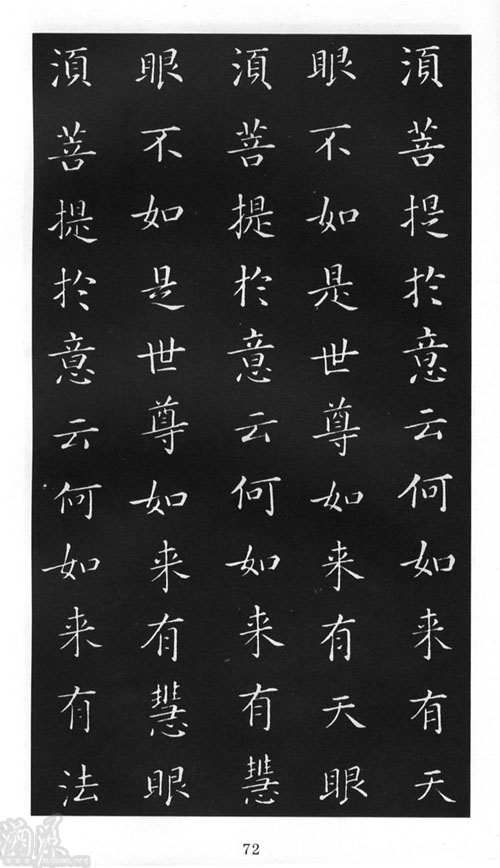 須菩提於意云何如来有天
眼不如是世尊如来有天眼
須菩提於意云何如来有慧
眼不如是世尊如来有慧眼
須菩提於意云何如来有法
72